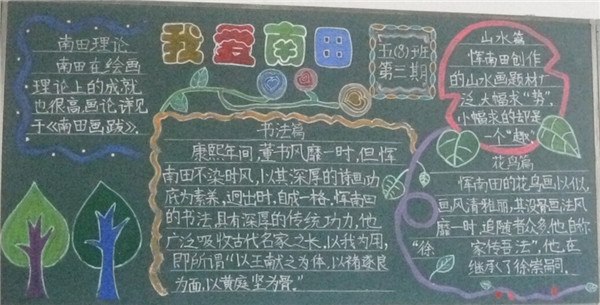 我爱南田
五(8)班
第三期
南田理论
南田在绘画
理论上的成就
也很高,画论详见
于《南田画跋》.
书法篇
康熙年间,董书风靡一时,但恽
南田不染时风,以其深厚的诗画功
底为素养,迥出时,自成一格,恽南田
的书法,具有深厚的传统功力,他
广泛吸收古代名家之长,以我为用,
即所谓"以王献之为体,以褚遂良
为面,以黄庭坚为骨."
山水篇
恽南田创作
的山水画题材广
泛,大幅求"势",
小幅求的却是
一个"趣"
花鸟篇
恽南田的花鸟画以似,
画风清雅丽,其没骨画法风
靡一时,追随者众多,他自称
"徐 家传吾法",他,在
继承了徐崇嗣,